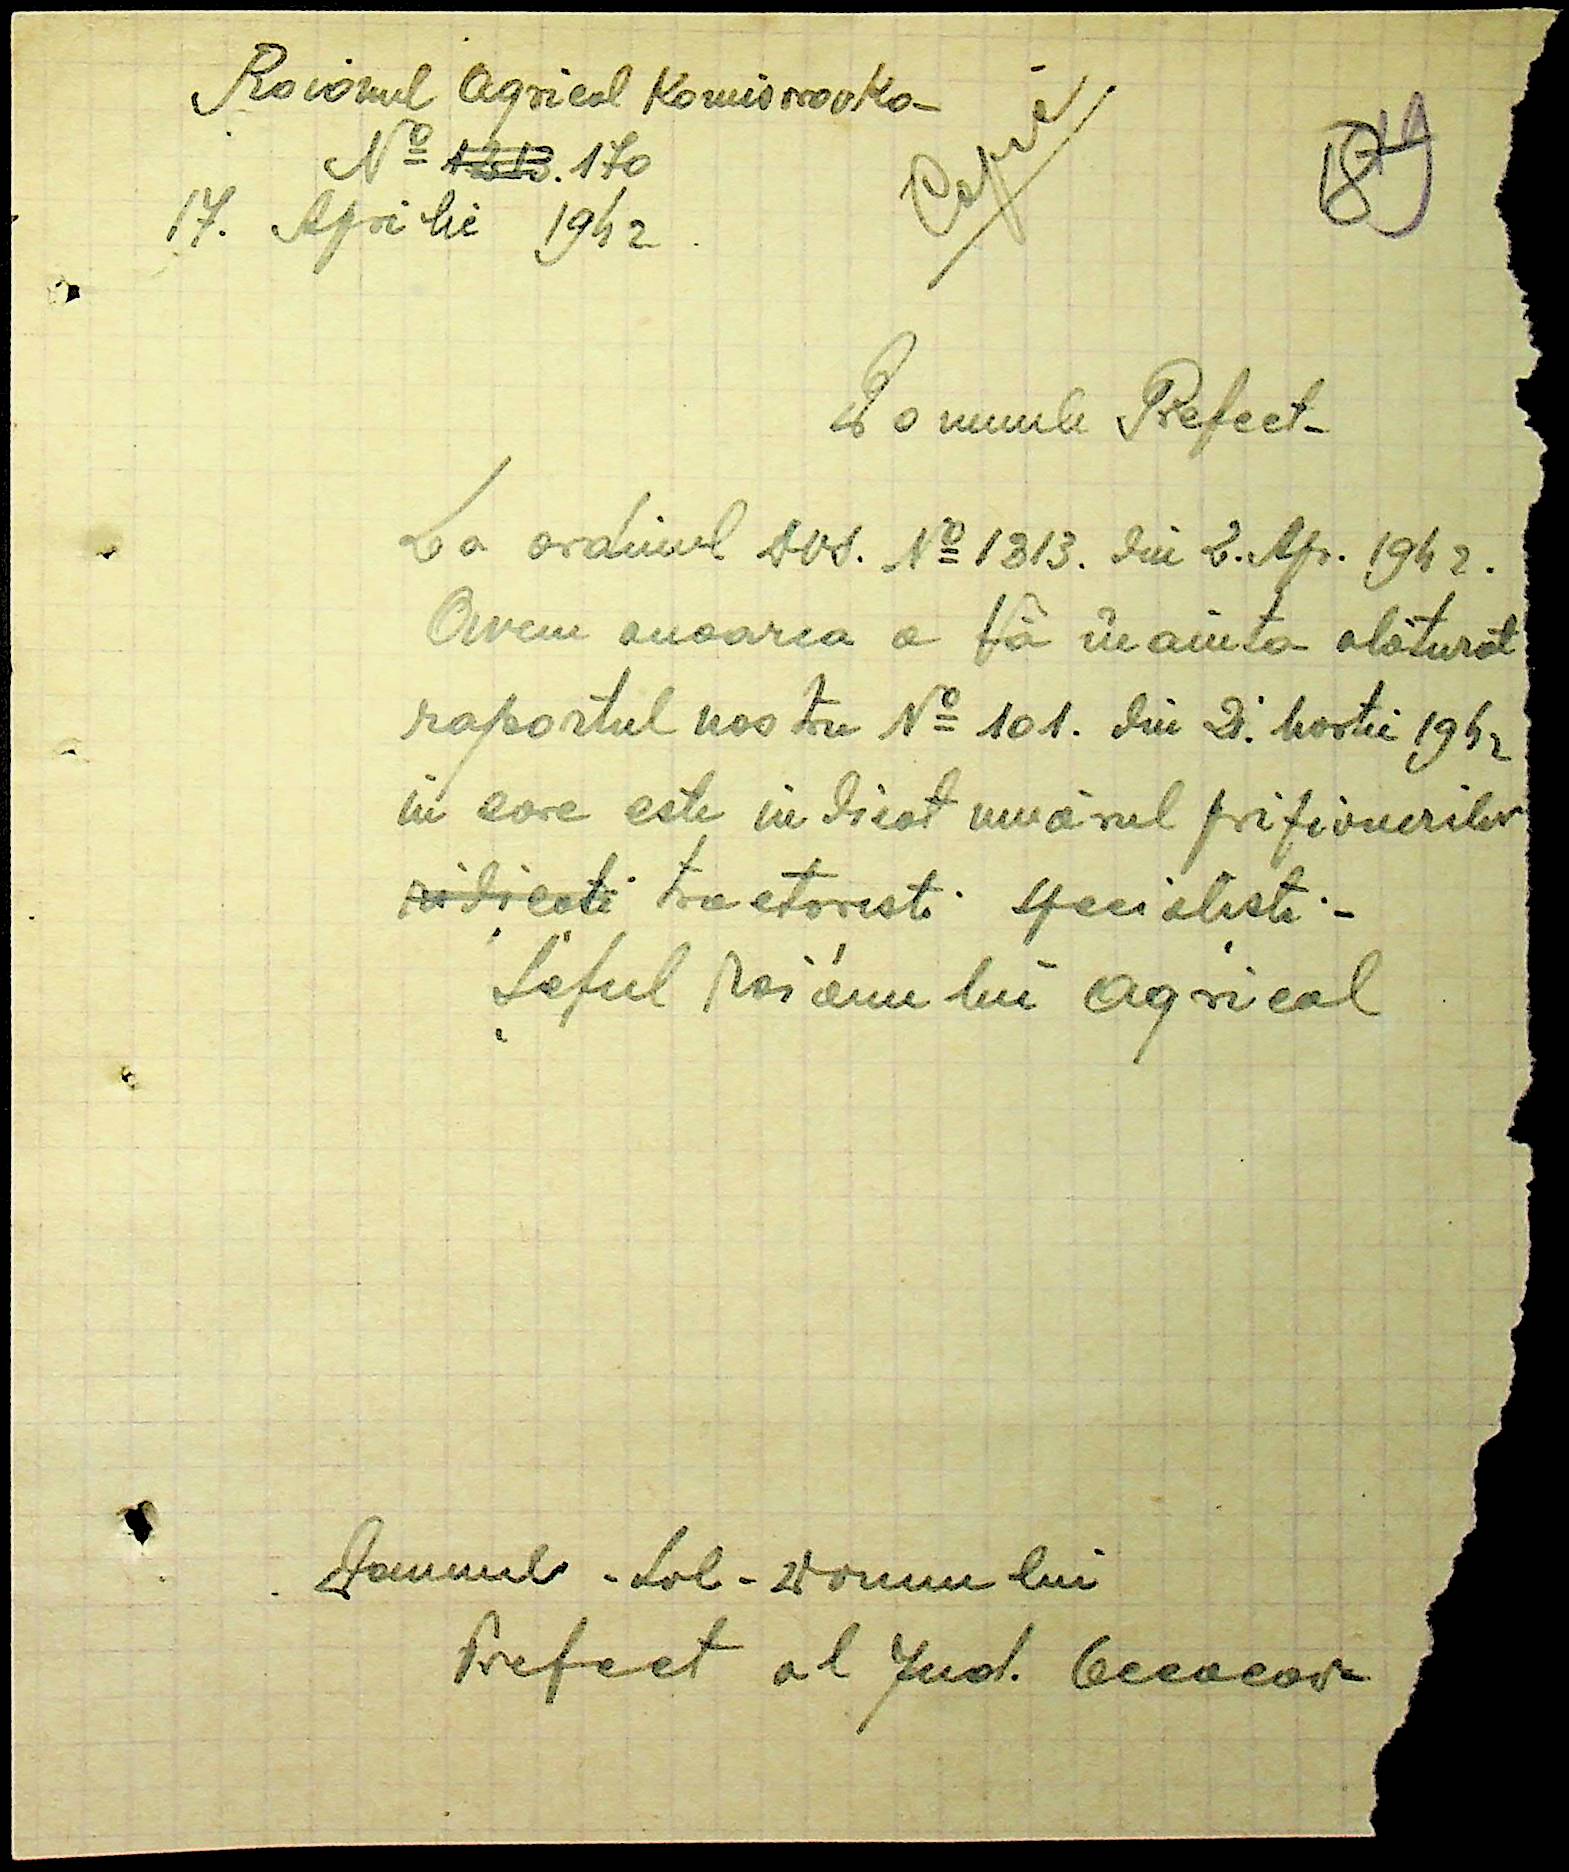 Raionul Agricol Komisarovka
Nº 1313. 170
17. Aprilie 1942.
Copie
Domnule Prefect-
La ordinul DVS. Nº 1313. din 2. Apr. 1942.
Avem onoarea a Vă înainta alăturat
raportul nostru Nº 101. din 21. Martie 1942
în care este indicat numărul prizionerilor
ridicati tractoristi specialisti.-
Șeful Raionului Agricol
Domnule - Col - Domnului
Prefect al Jud. Oceacov